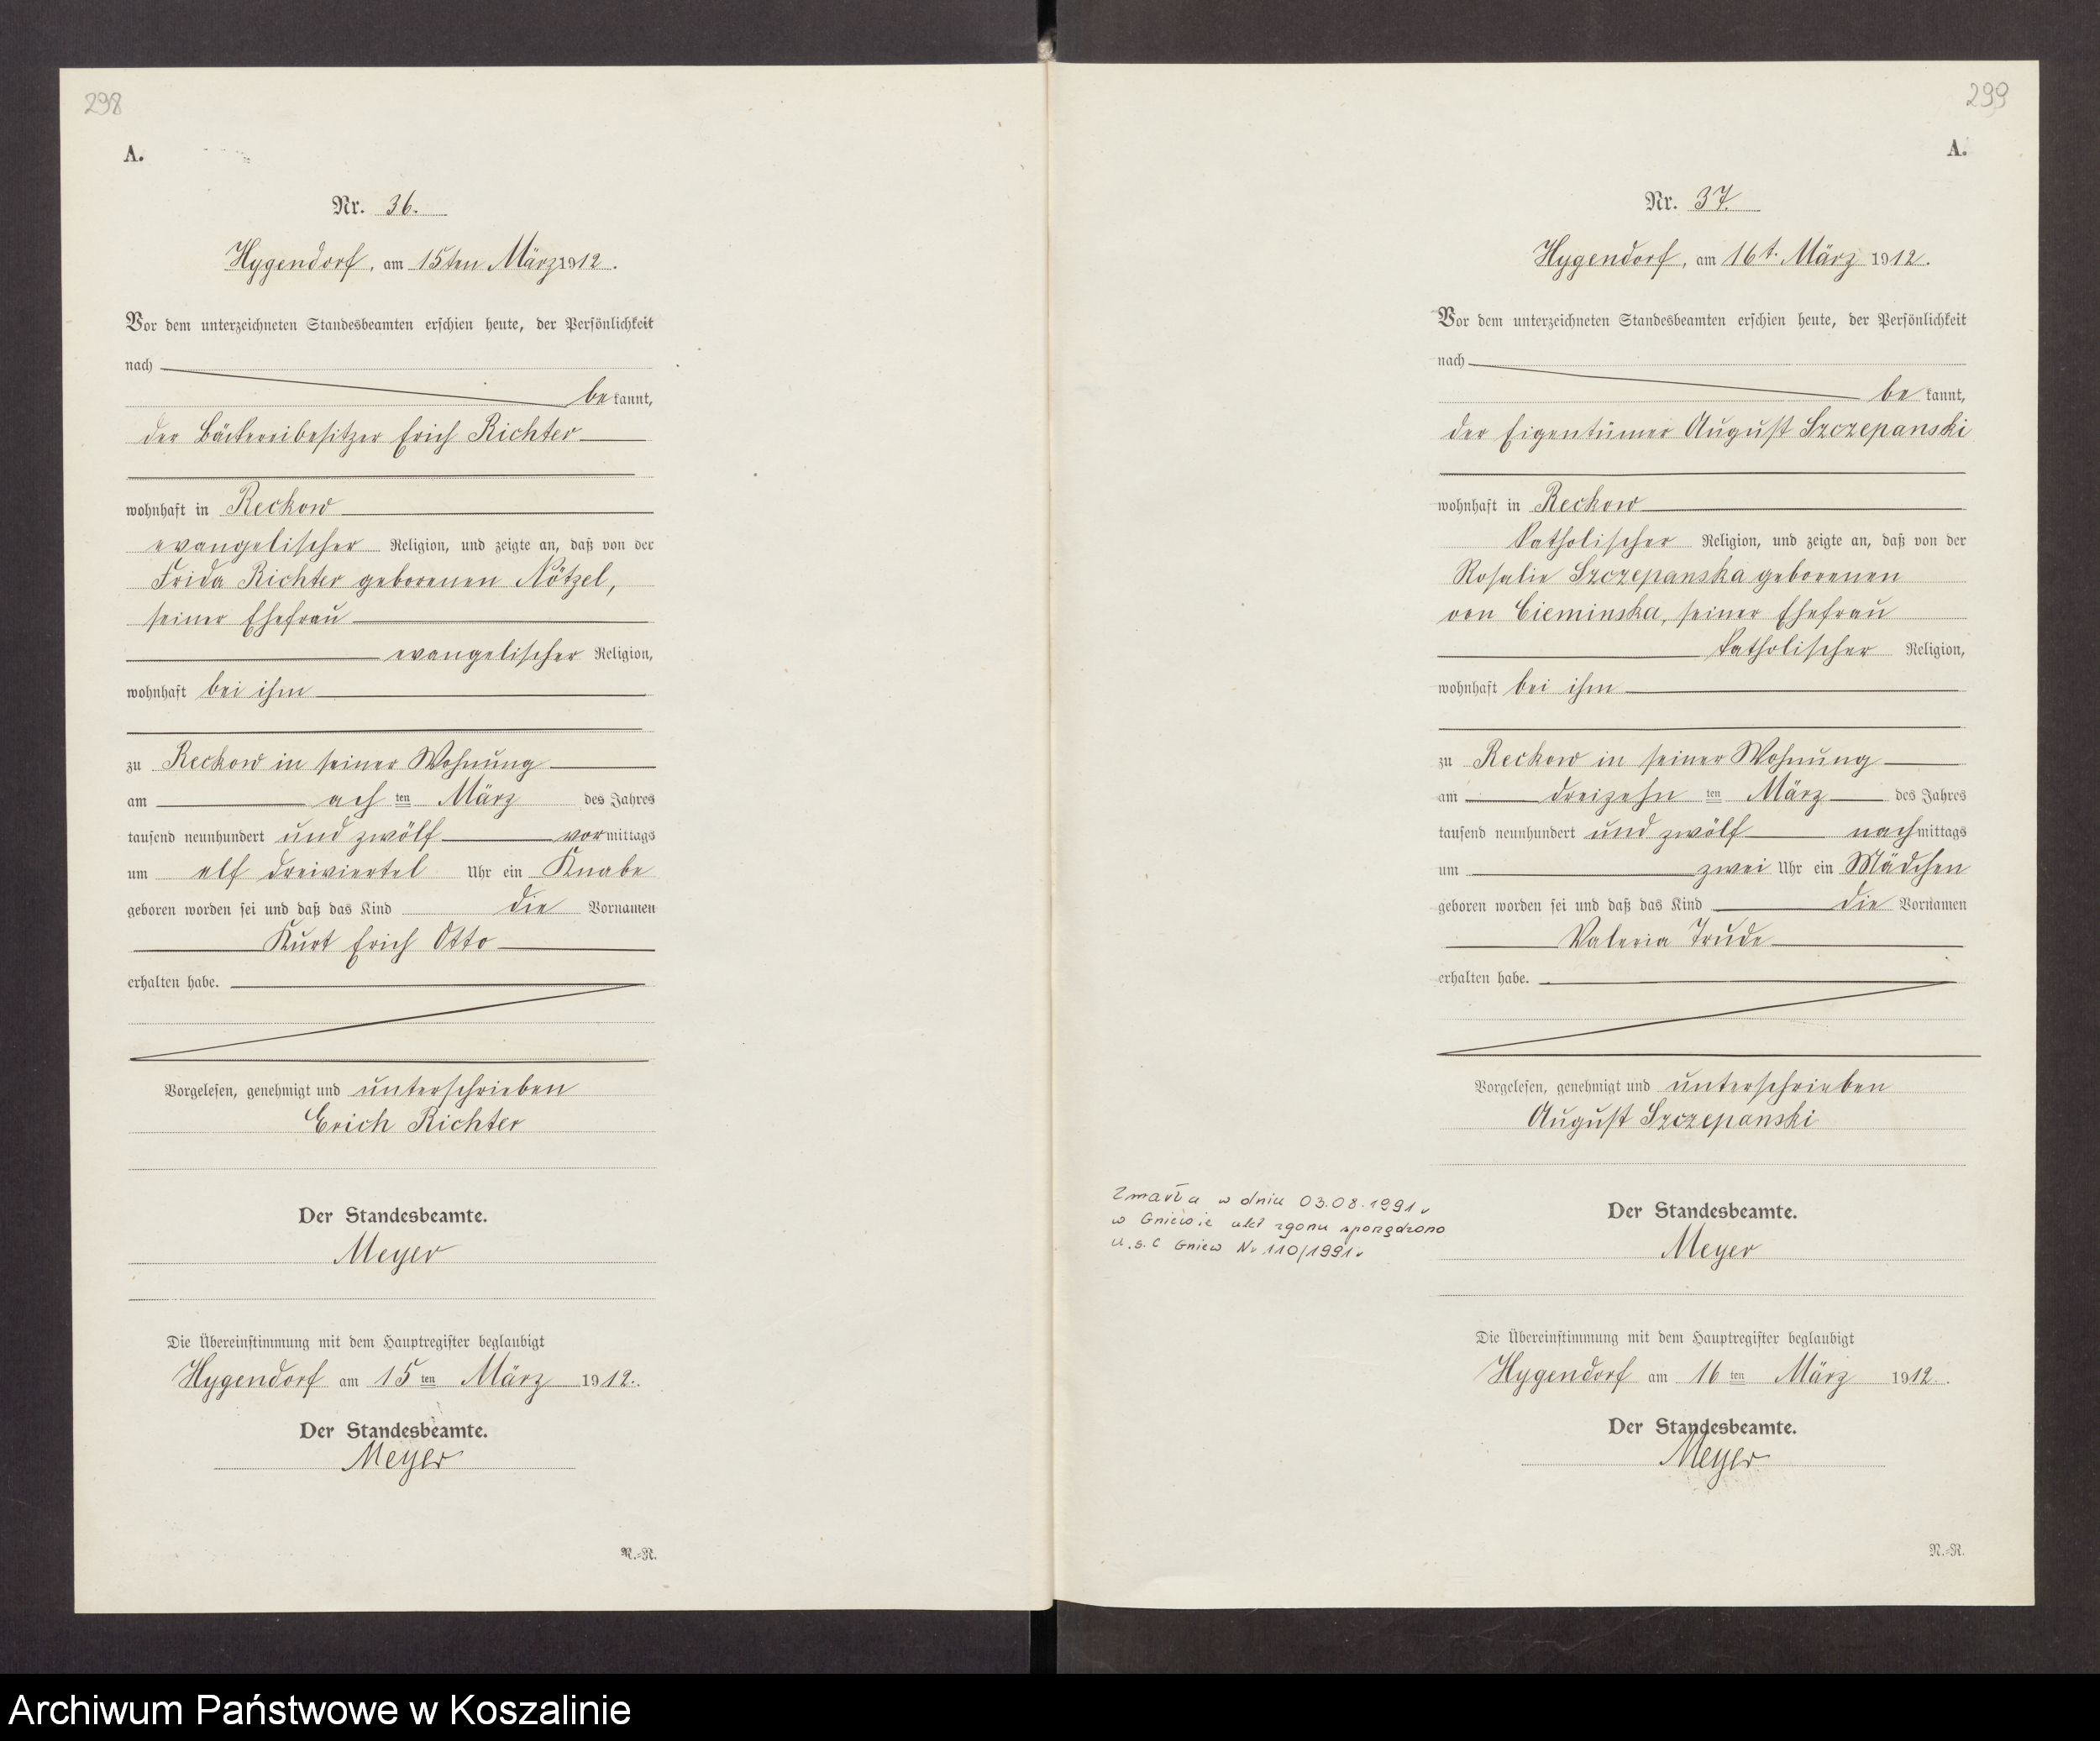 298
A.
Nr. 36.
Hygendorf, am 15ten März 1912.
Vor dem unterzeichneten Standesbeamten erschien heute, der Persönlichkeit
nach
bekannt,
der Bäckereibesitzer Erich Richter
wohnhaft in Reckow
evangelischer Religion, und zeigte an, daß von der
Frida Richter geborenen Nötzel,
seiner Ehefrau
evangelischer Religion,
wohnhaft bei ihm
zu Reckow in seiner Wohnung
am achten März des Jahres
tausend neunhundert und zwölf vormittags
um elf dreiviertel Uhr ein Knabe
geboren worden sei und daß das Kind die Vornamen
Kurt Erich Otto
erhalten habe.
Vorgelesen, genehmigt und unterschrieben
Erich Richter
Der Standesbeamte.
Meyer
Die Übereinstimmung mit dem Hauptregister beglaubigt
Hygendorf am 15ten März 1912.
Der Standesbeamte.
Meyer
N.=R.
299
A.
Nr. 37.
Hygendorf, am 16t. März 1912.
Vor dem unterzeichneten Standesbeamten erschien heute, der Persönlichkeit
nach
bekannt,
der Eigentümer August Szczepanski
wohnhaft in Reckow
katholischer Religion, und zeigte an, daß von der
Rosalie Szczepanska geborenen
von Cieminska, seiner Ehefrau
katholischer Religion,
wohnhaft bei ihm
zu Reckow in seiner Wohnung
am dreizehnten März des Jahres
tausend neunhundert und zwölf nachmittags
um zwei Uhr ein Mädchen
geboren worden sei und daß das Kind die Vornamen
Valeria Trude
erhalten habe.
Vorgelesen, genehmigt und unterschrieben
August Szczepanski
Zmarła w dniu 03.08.1991r
w Gniewie akt zgonu sporządzono
U.S.C Gniew Nr 110/1991r
Der Standesbeamte.
Meyer
Die Übereinstimmung mit dem Hauptregister beglaubigt
Hygendorf am 16ten März 1912.
Der Standesbeamte.
Meyer
N.=R.
Archiwum Państwowe w Koszalinie